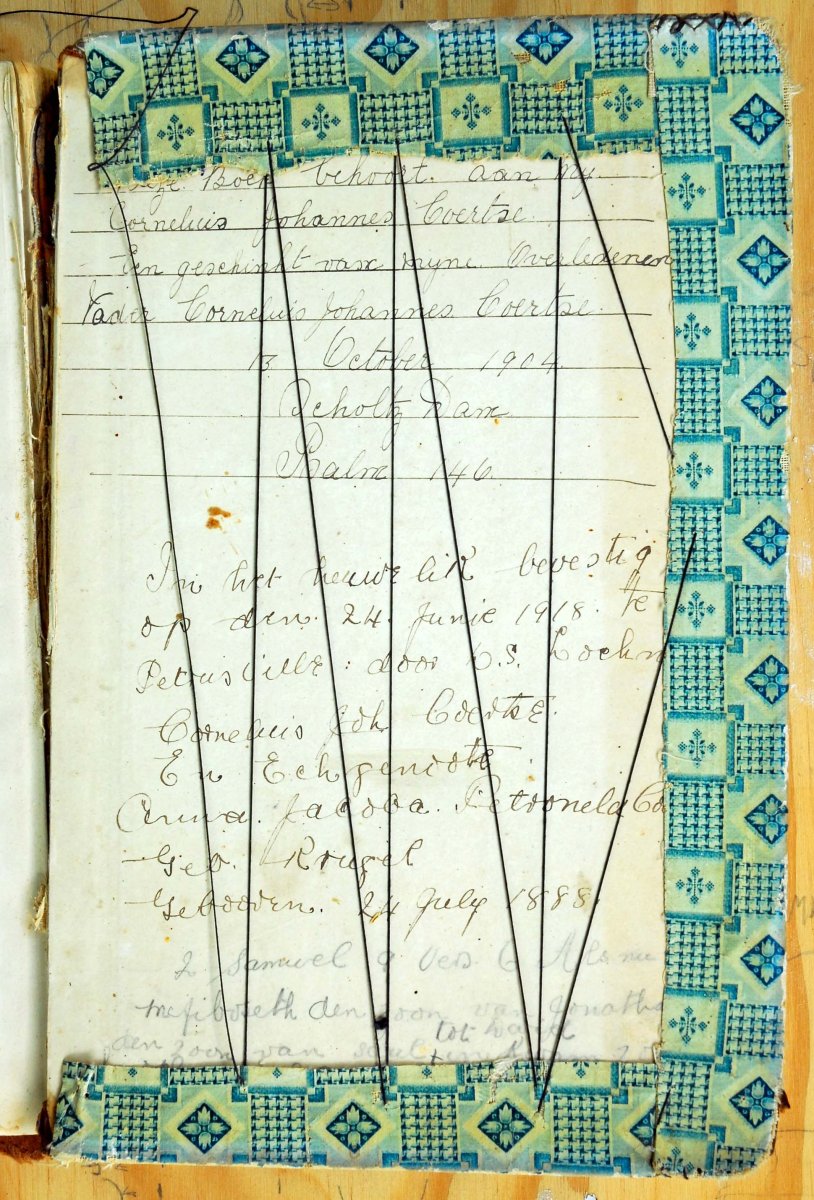 Boek behoort aan my
Cornelius Johannes Coertse
Een geschinkt van myne Overledenen
Vader Cornelius Johannes Coertse
13 October 1904
Scholtz Dam
Psalm 146.
In het heuwelik bevestig
op den. 24. Junie 1918. te
Petrusville: door
Cornelius Joh. Coertse.
En Echgenoote
Anna. Jacoba. Petronela Co
Geb. Krugel
Gebooren. 24 July 1888.
2 Samuel 9 Vers 6 Als nu
mefiboseth den zoon van Jonatha
tot David
den zoon van Saul